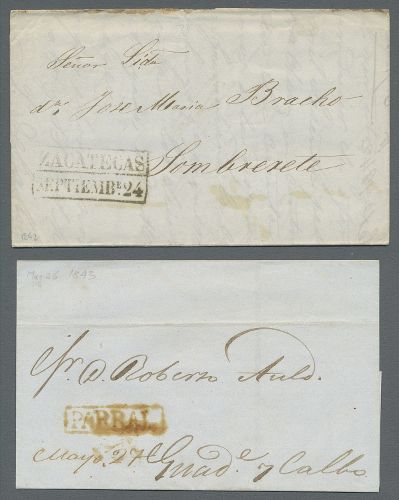 Señor Lido
dn. Jose Maria Bracho
ZACATECAS
SEPTIEMBE. 24
Sombrerete
1842
May 26 1843
Sr. D. Roberto Auld.
PARRAL
Mayo 27
Guade. y Calbo